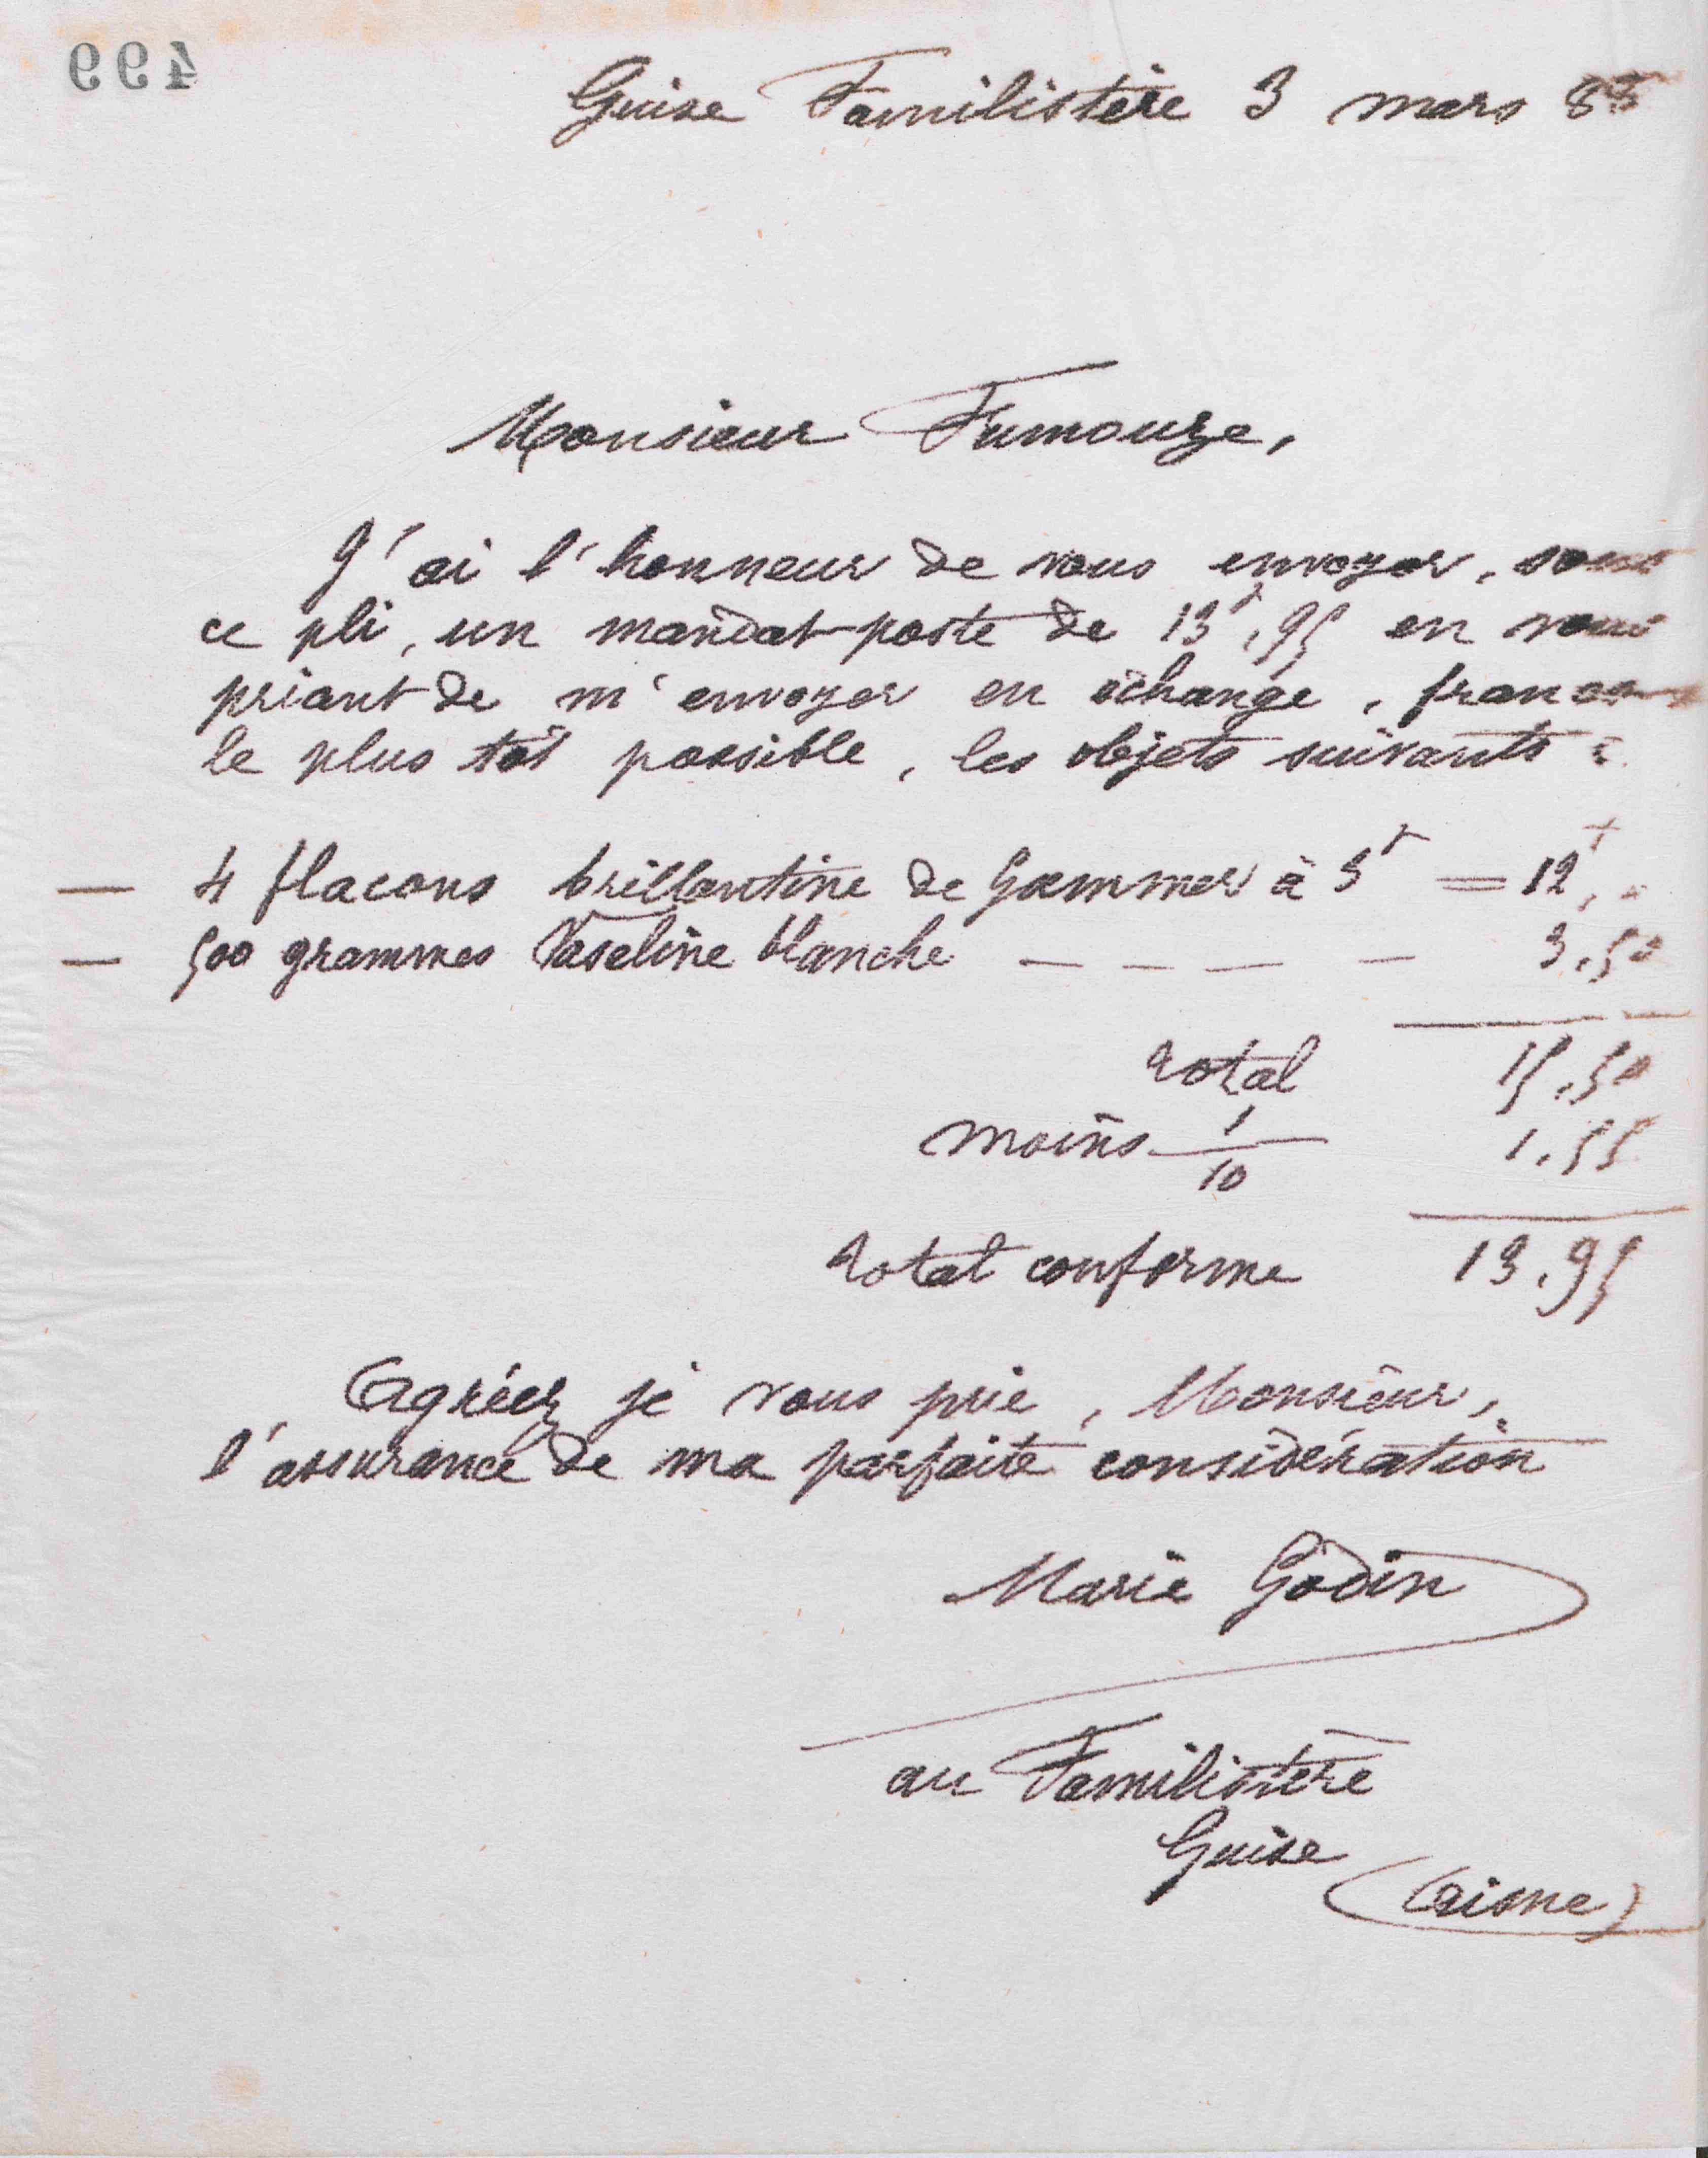 499
Guise Familistère 3 mars 83
Monsieur Fumouze,
J'ai l'honneur de vous envoyer, sous
ce pli, un mandat-poste de 13f,95 en vous
priant de m'envoyer en échange, franco
le plus tôt possible, les objets suivants :
— 4 flacons brillantine de Gammer à 3f = 12f,"
— 500 grammes Vaseline blanche — — — — 3,50
total 15,50
moins 1/10 1,55
total conforme 13,95
Agréez je vous prie, Monsieur,
l'assurance de ma parfaite considération
Marie Godin
au Familistère
Guise
(Aisne)